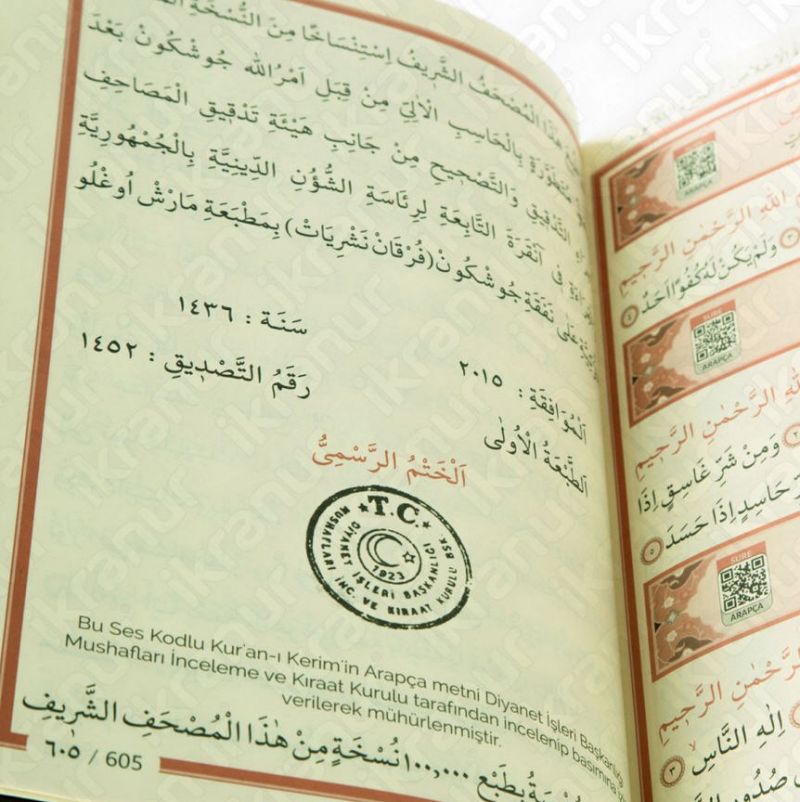 هٰذَا الْمُصْحَفُ الشَّرِيفُ اِسْتِنْسَاخًا مِنَ النُّسْخَةِ
مَنْظُورَةٍ بِالْحَاسِبِ الْاٰلِيِّ مِنْ قِبَلِ اَمْرُ اللّٰه جُوشْكُونْ بَعْدَ
التَّدْقِيقِ وَالتَّصْحِيحِ مِنْ جَانِبِ هَيْئَةِ تَدْقِيقِ الْمَصَاحِفِ
فِى اٰنْقَرَةَ التَّابِعَةِ لِرِئَاسَةِ الشُّؤُنِ الدِّينِيَّةِ بِالْجُمْهُورِيَّةِ
عَلٰى نَفَقَةِ جُوشْكُونْ (فُرْقَانْ نَشْرِيَاتْ) بِمَطْبَعَةِ مَارْشْ اُوغْلُو
سَنَة : ١٤٣٦
اَلْمُوَافَقَةِ : ٢٠١٥
رَقَمُ التَّصْدِيقِ : ١٤٥٢
اَلطَّبْعَةُ الْاُولٰى
اَلْخَتْمُ الرَّسْمِيُّ
T.C.
DİYANET İŞLERİ BAŞKANLIĞI
MUSHAFLARI İNC. VE KIRAAT KURULU BŞK.
1923
Bu Ses Kodlu Kur'an-ı Kerim'in Arapça metni Diyanet İşleri Başkanlığı
Mushafları İnceleme ve Kıraat Kurulu tarafından incelenip basımına
verilerek mühürlenmiştir.
بِطَبْعِ ١٠٠,٠٠٠ نُسْخَةٍ مِنْ هٰذَا الْمُصْحَفِ الشَّرِيفِ
٦٠٥ / 605
ARAPÇA
اللّٰهِ الرَّحْمٰنِ الرَّحِيمِ
وَلَمْ يَكُنْ لَهُ كُفُوًا اَحَدٌ ٤
SURE
ARAPÇA
الرَّحْمٰنِ الرَّحِيمِ
٢ وَمِنْ شَرِّ غَاسِقٍ اِذَا
حَاسِدٍ اِذَا حَسَدَ ٥
SURE
ARAPÇA
الرَّحْمٰنِ الرَّحِيمِ
اِلٰهِ النَّاسِ ٣
صُدُورِ
ikranur